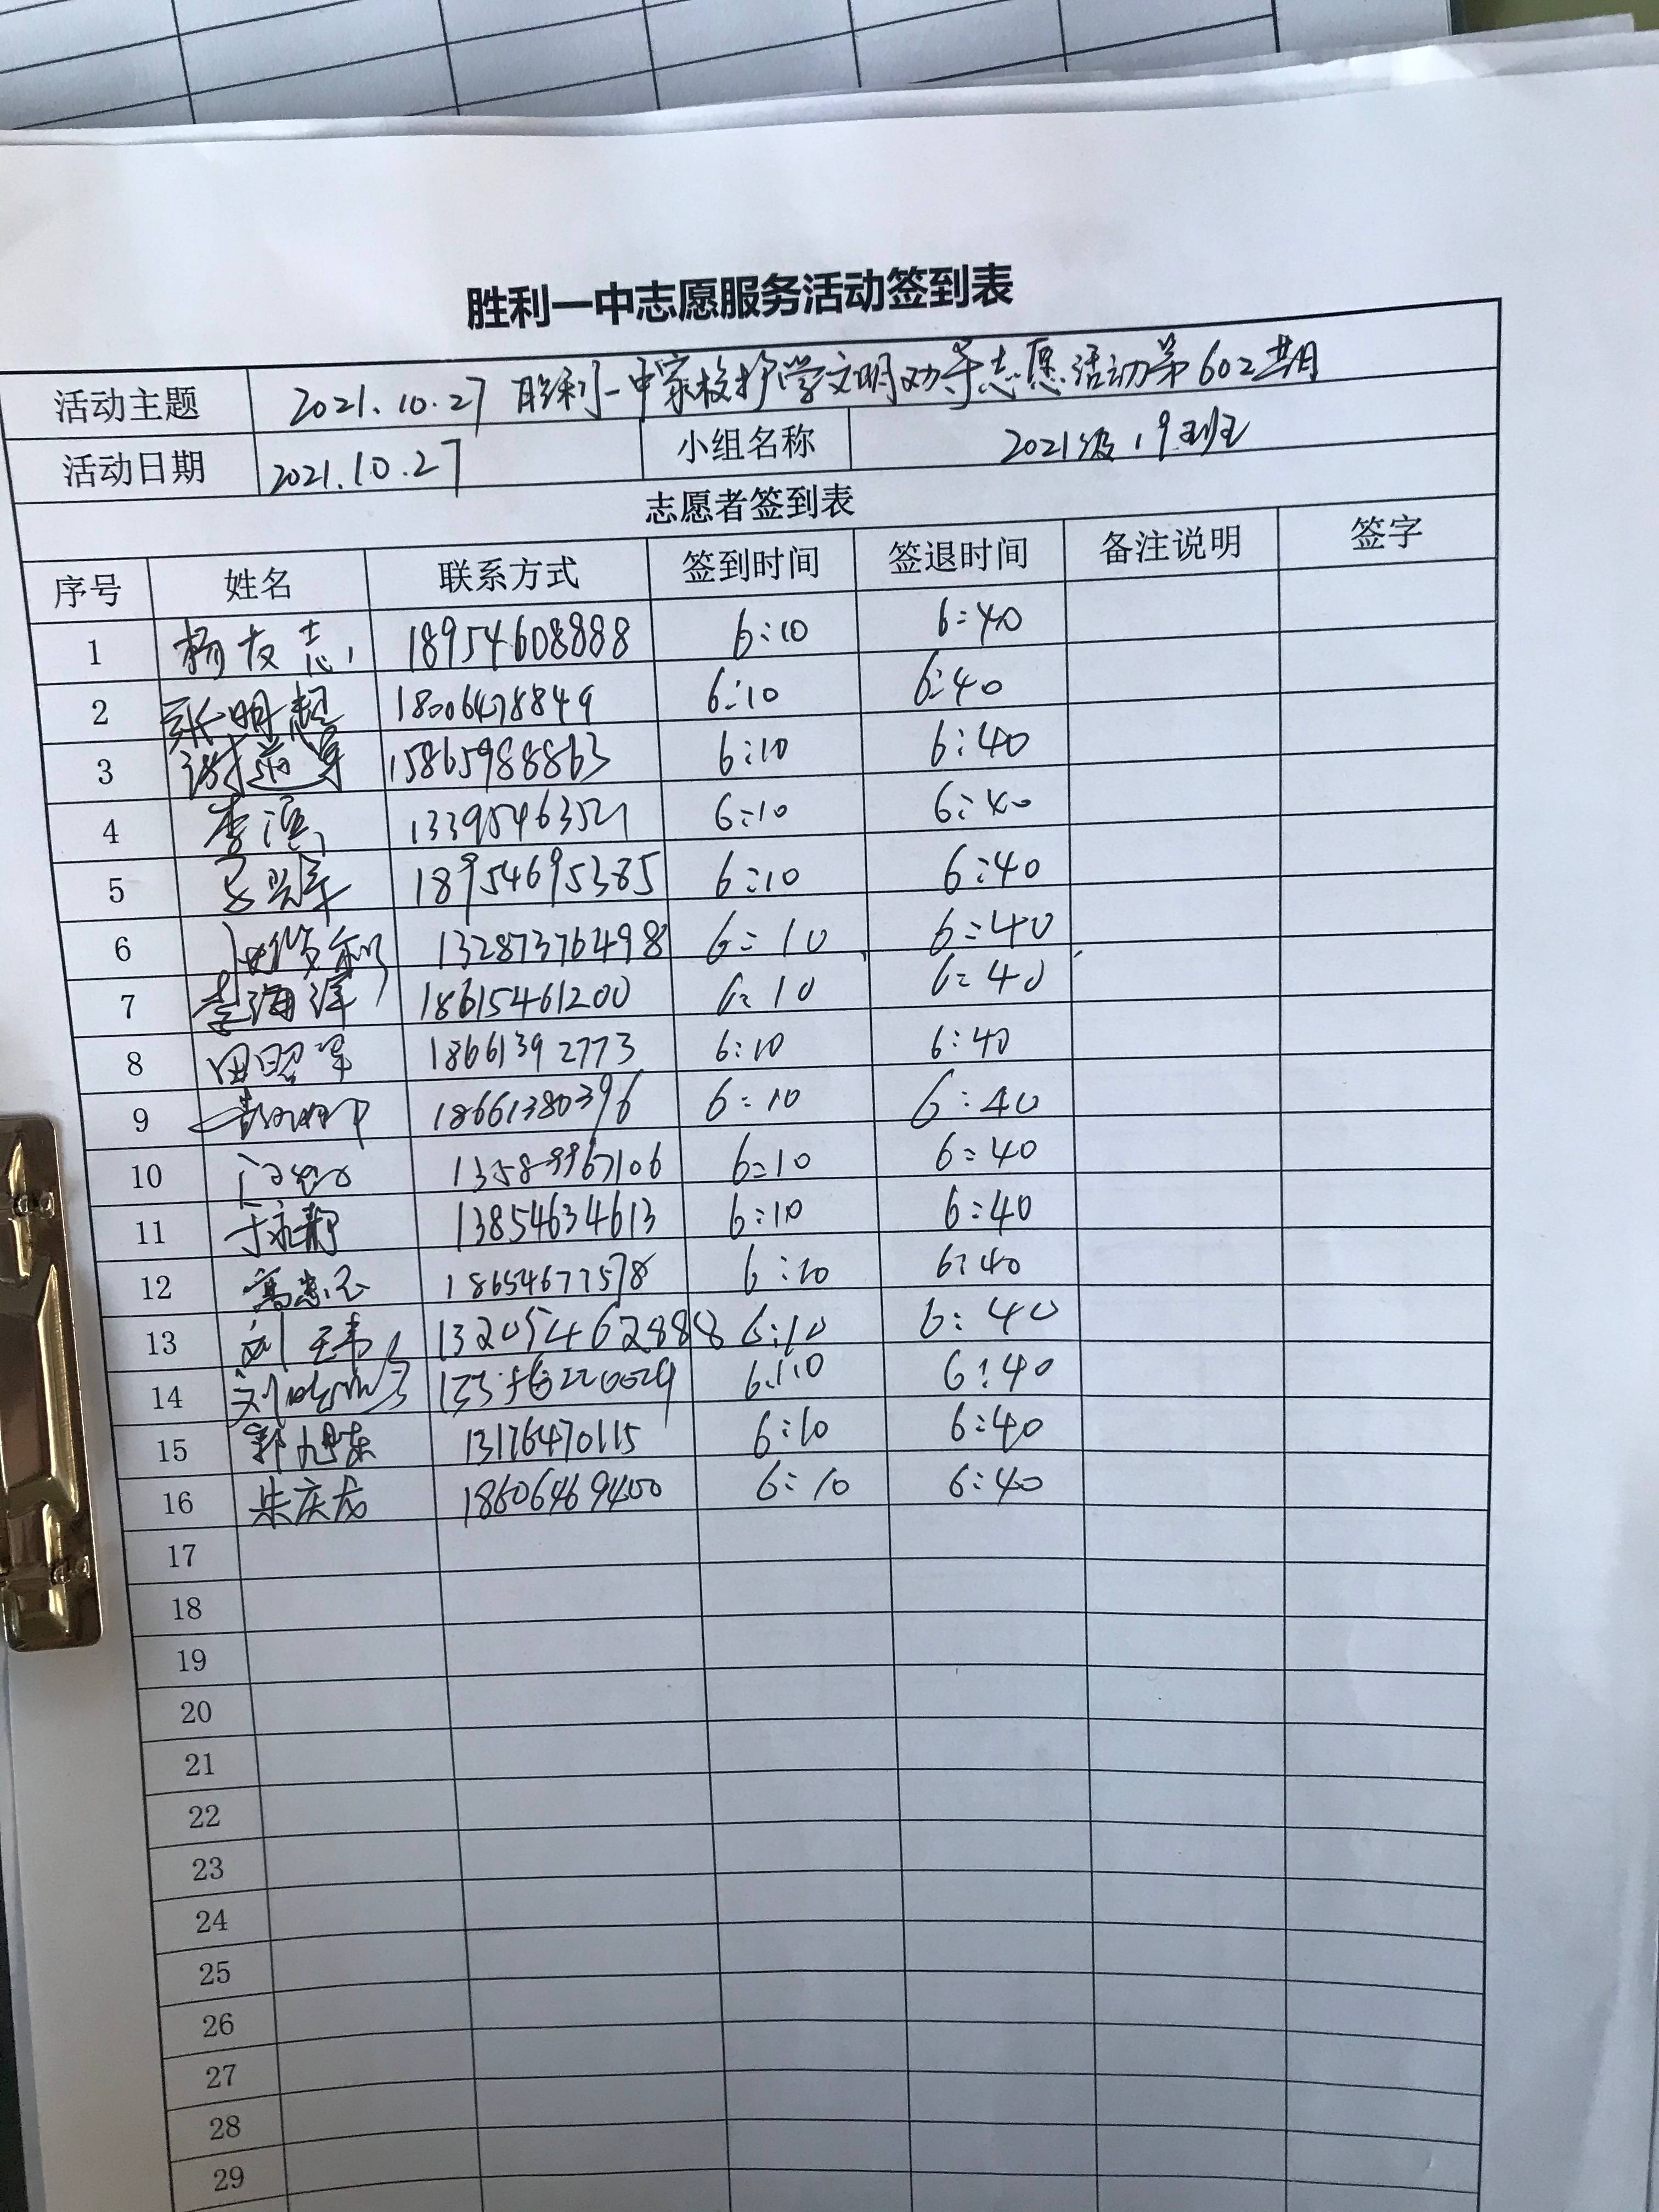 胜利一中志愿服务活动签到表
活动主题 2021.10.27 胜利一中家校护学文明劝导志愿活动第602期
活动日期 2021.10.27 小组名称 2021级19班
志愿者签到表
序号 姓名 联系方式 签到时间 签退时间 备注说明 签字
1 杨友志 18954608888 6:10 6:40
2 张明超 18006478849 6:10 6:40
3 15865988863 6:10 6:40
4 李滨 13395463521 6:10 6:40
5 18954695385 6:10 6:40
6 13287376498 6:10 6:40
7 李海洋 18615461200 6:10 6:40
8 田昭军 18661392773 6:10 6:40
9 18661380396 6:10 6:40
10 13589967106 6:10 6:40
11 于永静 13854634613 6:10 6:40
12 18654677578 6:10 6:40
13 刘玉韦 13205462888 6:10 6:40
14 6:10 6:40
15 郭旭东 13176470115 6:10 6:40
16 朱庆龙 18606469400 6:10 6:40
17
18
19
20
21
22
23
24
25
26
27
28
29